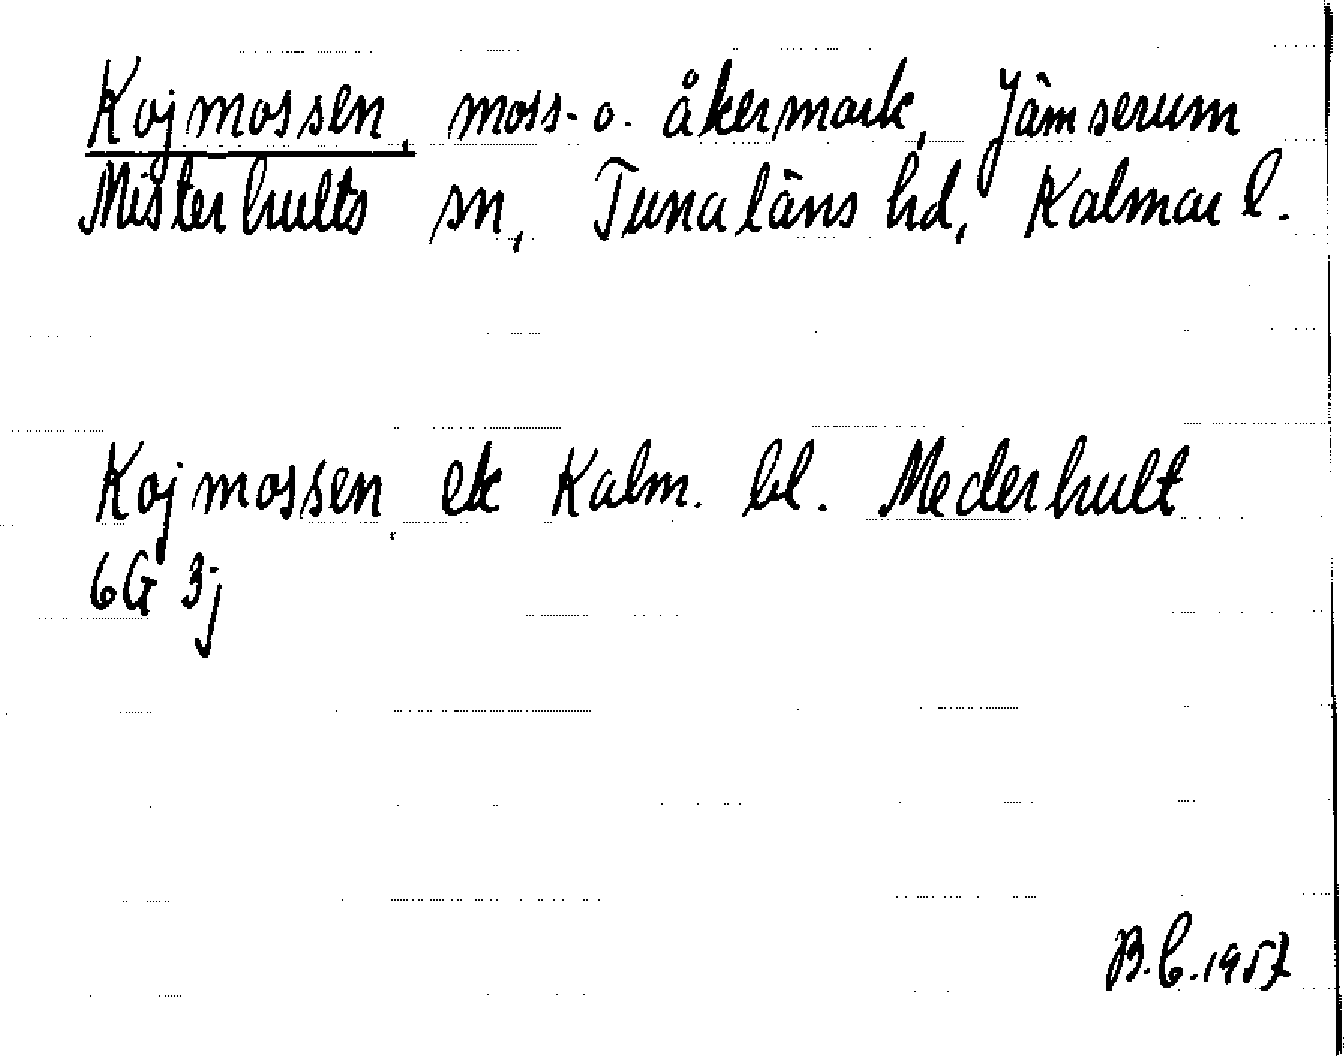 Kojmossen, moss- o. åkermark, Jämserum
Misterhults sn, Tunaläns hd, Kalmar l.
Kojmossen, ek Kalm. bl. Mederhult
6G 3j
B.C. 1957